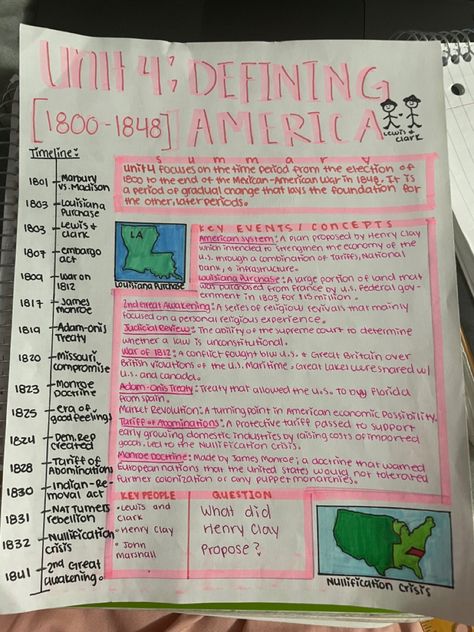 Unit 4: DEFINING
[1800-1848] AMERICA
Lewis &
Clark
Timeline:
1801 Marbury
vs. Madison
1803 Louisiana
Purchase
1803 Lewis &
Clark
1807 embargo
act
1809 war on
1812
1817 James
monroe
1819 Adam-onis
Treaty
1820 missouri
compromise
1823 monroe
Doctrine
1825 era of
good feelings
1824 Dem. Rep
created
1828 Tariff of
Abominations
1830 Indian-Re-
moval act
1831 NAT Turners
rebellion
1832 Nullification
crisis
1841 2nd Great
awakening
summary
Unit 4 focuses on the time period from the election of
1800 to the end of the Mexican-American war in 1848. It is
a period of gradual change that lays the foundation for
the other, later periods.
LA
Louisiana Purchase
KEY EVENTS/CONCEPTS
American system: A plan proposed by Henry Clay
which intended to strengthen the economy of the
U.S. through a combination of Tariffs, National
bank, & infrastructure.
Louisiana Purchase: A large portion of land that
was purchased from France by U.S. federal gov-
ernment in 1803 for $15 million.
Awakening: A series of religious revivals that mainly
focused on a personal religious experience.
Judicial Review: The ability of the supreme court to determine
whether a law is unconstitutional.
War of 1812: A conflict fought b/w U.S. & Great Britain over
British violations of the U.S. Maritime, Great lakes were shared w/
U.S. and Canada.
Adam-Onis Treaty: Treaty that allowed the U.S. to buy florida
from spain.
Market Revolution: A turning point in American economic possibility.
Tariff of Abominations: A protective tariff passed to support
early growing domestic industries by raising costs of imported
goods. Led to the Nullification crisis.
Monroe Doctrine: Made by James Monroe; a doctrine that warned
European nations that the United States would not tolerated
further colonization or any puppet monarchies.
KEY PEOPLE
• Lewis and
Clark
• Henry Clay
• John
Marshall
QUESTION
What did
Henry Clay
Propose?
Nullification Crisis